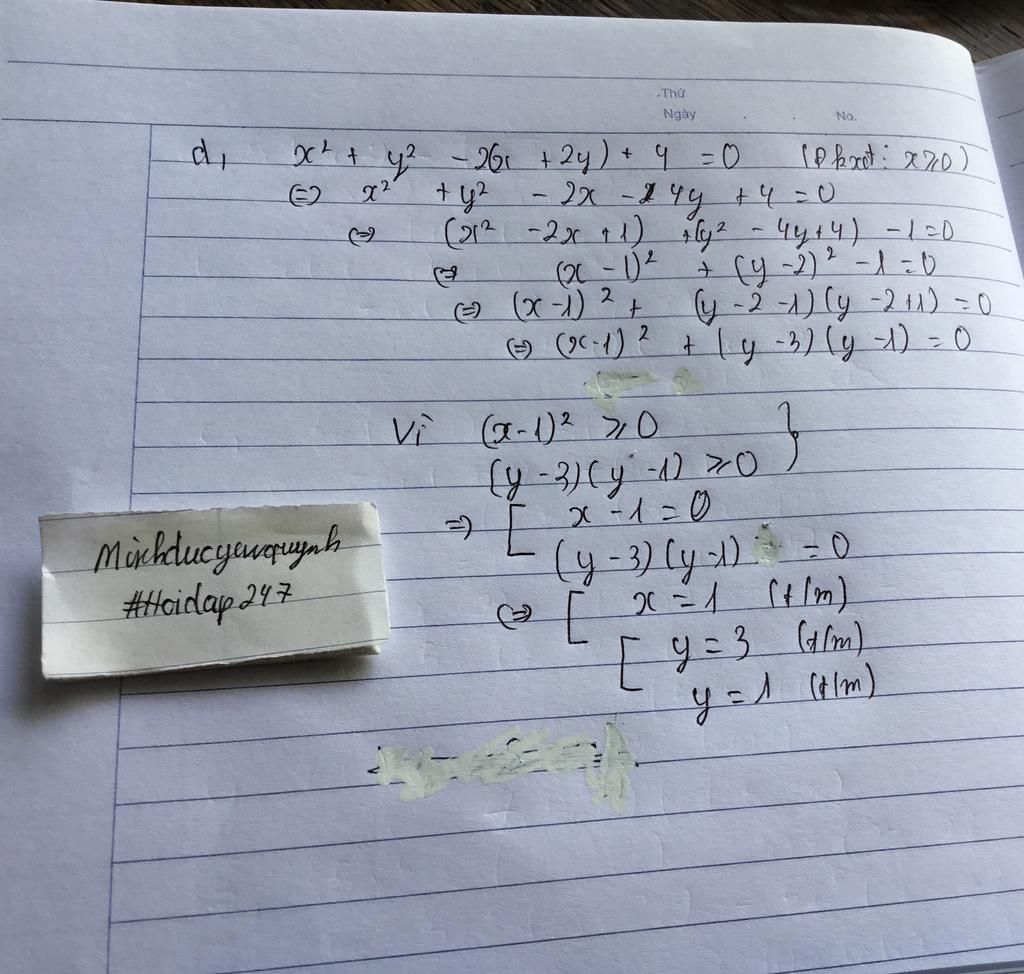 Thứ
Ngày . . No.
d, x² + y² - 2(x + 2y) + 4 = 0 (Đkxđ: x ≥ 0)
⇔ x² + y² - 2x - 4y + 4 = 0
⇔ (x² - 2x + 1) + (y² - 4y + 4) - 1 = 0
⇔ (x - 1)² + (y - 2)² - 1 = 0
⇔ (x - 1)² + (y - 2 - 1)(y - 2 + 1) = 0
⇔ (x - 1)² + (y - 3)(y - 1) = 0
Vì (x - 1)² ≥ 0 }
(y - 3)(y - 1) ≥ 0
⇒ [ x - 1 = 0
(y - 3)(y - 1) = 0
⇔ [ x = 1 (t/m)
[ y = 3 (t/m)
y = 1 (t/m)
Minhducyeuquynh
#Hoidap247